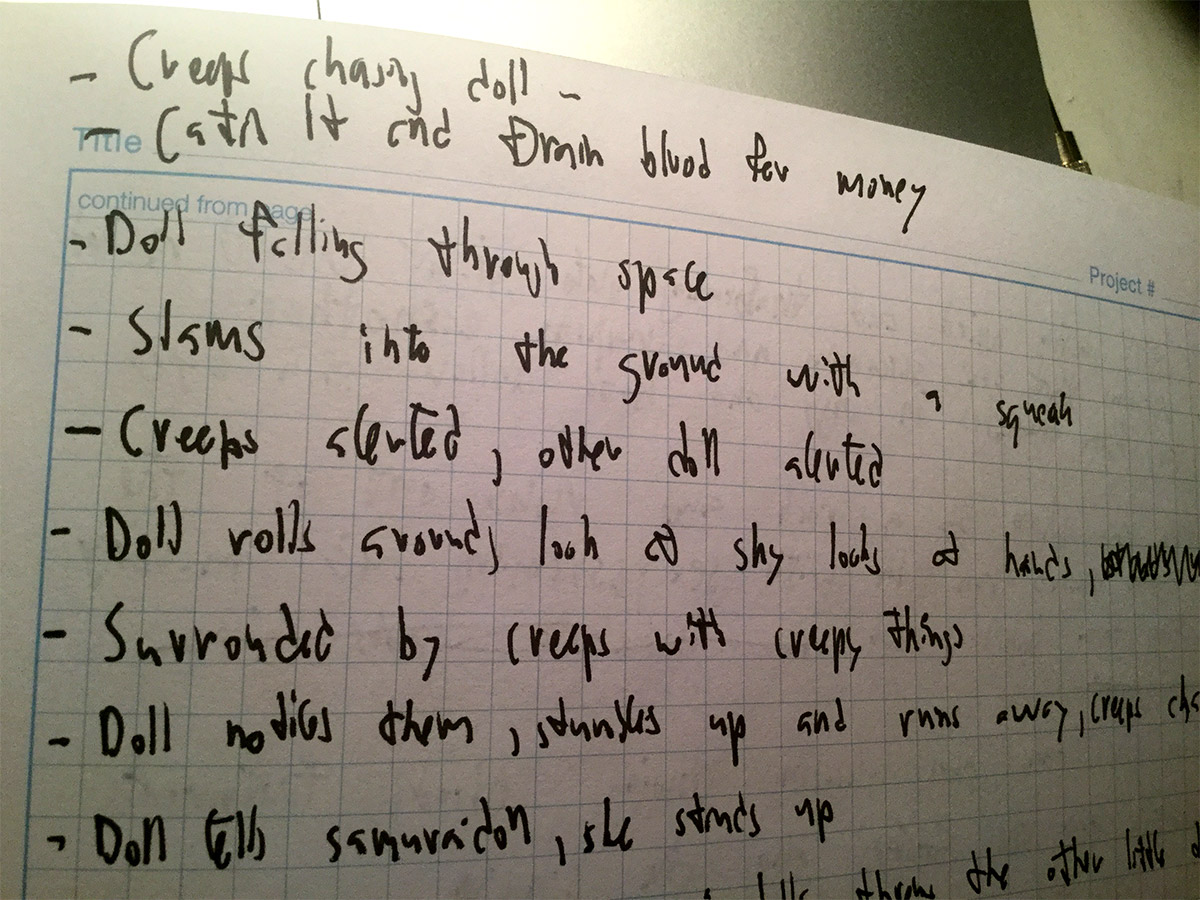 - Creeps chasing doll -
- Catch It and Drain blood for money
Title
continued from page
- Doll falling through space
Project #
- Slams into the ground with a squeak
- Creeps alerted, other doll alerted
- Doll rolls around, look at sky looks at hands,
- Surronded by creeps with creepy things
- Doll notices them, stumbles up and runs away, creeps
- Doll tells samuraidoll, she stands up
the other little